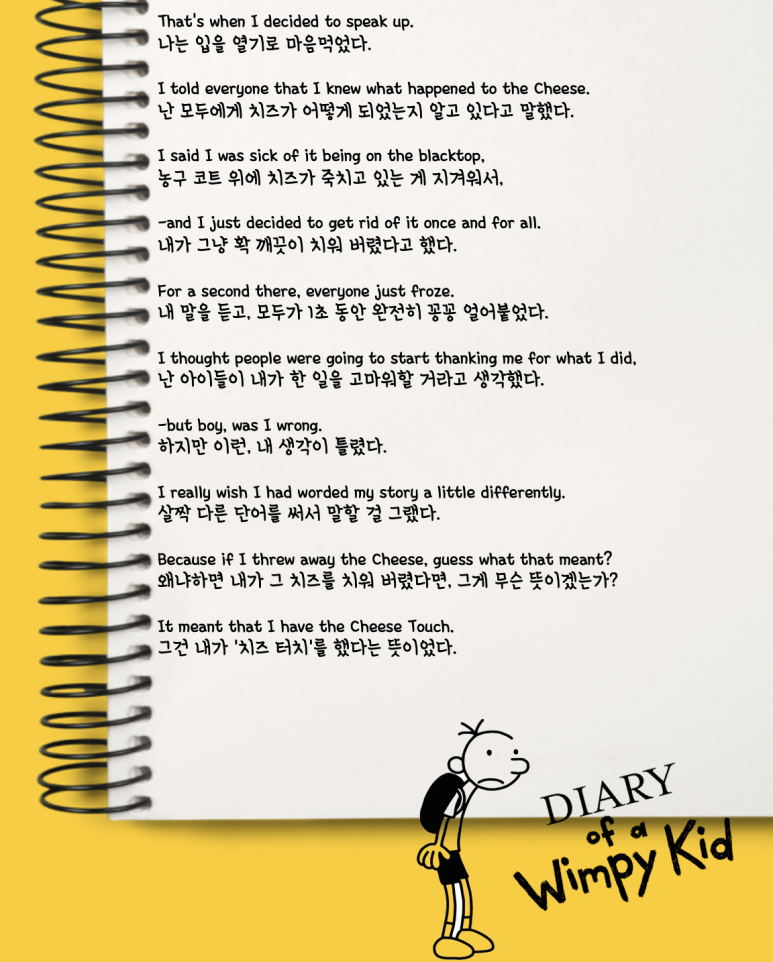 That's when I decided to speak up.
나는 입을 열기로 마음먹었다.
I told everyone that I knew what happened to the Cheese.
난 모두에게 치즈가 어떻게 되었는지 알고 있다고 말했다.
I said I was sick of it being on the blacktop,
농구 코트 위에 치즈가 죽치고 있는 게 지겨워서,
-and I just decided to get rid of it once and for all.
내가 그냥 확 깨끗이 치워 버렸다고 했다.
For a second there, everyone just froze.
내 말을 듣고, 모두가 1초 동안 완전히 꽁꽁 얼어붙었다.
I thought people were going to start thanking me for what I did,
난 아이들이 내가 한 일을 고마워할 거라고 생각했다.
-but boy, was I wrong.
하지만 이런, 내 생각이 틀렸다.
I really wish I had worded my story a little differently.
살짝 다른 단어를 써서 말할 걸 그랬다.
Because if I threw away the Cheese, guess what that meant?
왜냐하면 내가 그 치즈를 치워 버렸다면, 그게 무슨 뜻이겠는가?
It meant that I have the Cheese Touch.
그건 내가 '치즈 터치'를 했다는 뜻이었다.
DIARY
of a
Wimpy Kid